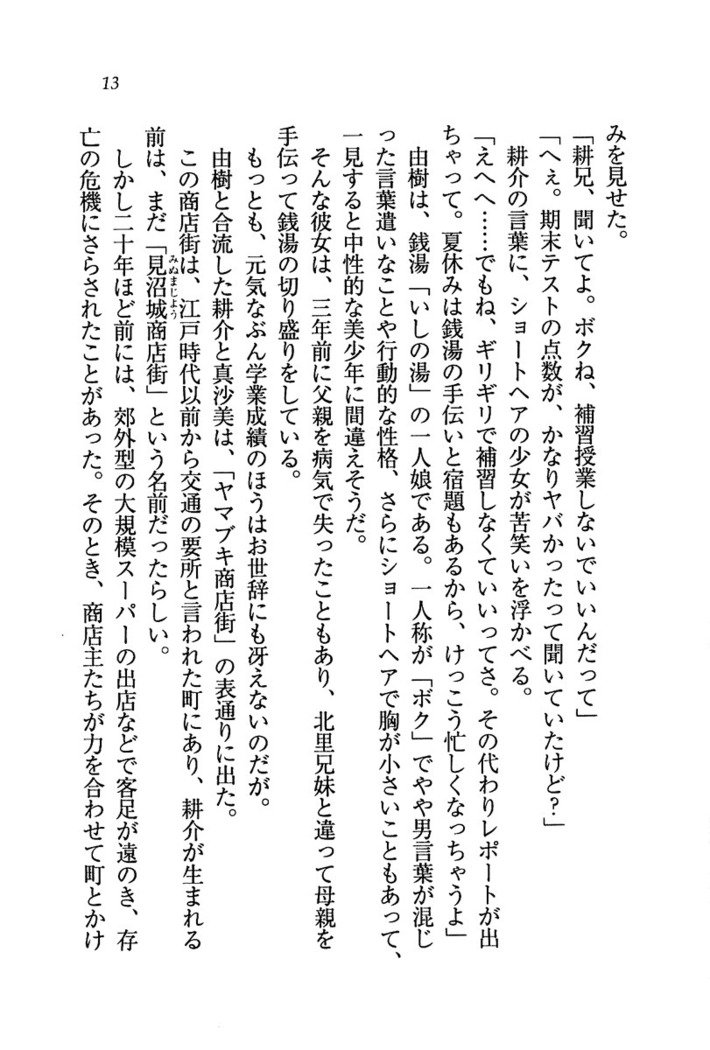 13
みを見せた。
「耕兄、聞いてよ。ボクね、補習授業しないでいいんだって」
「へぇ。期末テストの点数が、かなりヤバかったって聞いていたけど？」
耕介の言葉に、ショートヘアの少女が苦笑いを浮かべる。
「えへへ……でもね、ギリギリで補習しなくていいってさ。その代わりレポートが出
ちゃって。夏休みは銭湯の手伝いと宿題もあるから、けっこう忙しくなっちゃうよ」
由樹は、銭湯「いしの湯」の一人娘である。一人称が「ボク」でやや男言葉が混じ
った言葉遣いなことや行動的な性格、さらにショートヘアで胸が小さいこともあって、
一見すると中性的な美少年に間違えそうだ。
そんな彼女は、三年前に父親を病気で失ったこともあり、北里兄妹と違って母親を
手伝って銭湯の切り盛りをしている。
もっとも、元気なぶん学業成績のほうはお世辞にも冴えないのだが。
由樹と合流した耕介と真沙美は、「ヤマブキ商店街」の表通りに出た。
この商店街は、江戸時代以前から交通の要所と言われた町にあり、耕介が生まれる
前は、まだ「見沼城商店街」という名前だったらしい。
みぬまじょう
しかし二十年ほど前には、郊外型の大規模スーパーの出店などで客足が遠のき、存
亡の危機にさらされたことがあった。そのとき、商店主たちが力を合わせて町とかけ